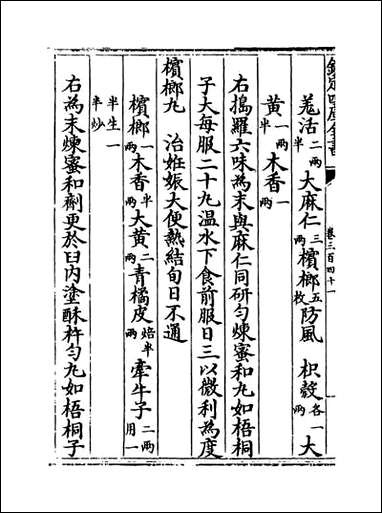 欽定四庫全書
卷三百四十一
羗活二兩半 大麻仁三兩 檳榔五枚 防風 枳殼各一兩 大
黄一兩半 木香一兩
右搗羅六味為末與麻仁同研匀煉蜜和丸如梧桐
子大每服二十丸温水下食前服日三以微利為度
檳榔丸 治姙娠大便熱結旬日不通
檳榔半兩 木香半兩 大黄二兩 青橘皮焙半兩 牽牛子二兩用一
半生一半炒
右為末煉蜜和劑更於臼内塗酥杵匀丸如梧桐子